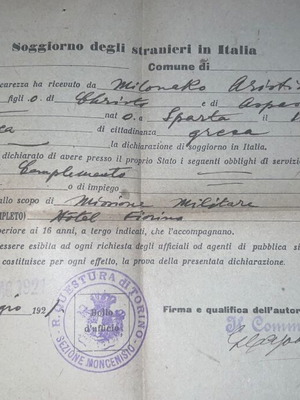 Soggiorno degli stranieri in Italia
Comune di
curezza ha ricevuto da Milonako Aristi
figlio di Christo e di Aspas
nato a Sparta il 1
di cittadinanza greca
la dichiarazione di soggiorno in Italia.
dichiarato di avere presso il proprio Stato i seguenti obblighi di servizi
Complemento
o di impiego
allo scopo di Missione Militare
MPLETO) Hotel Fiorina
periore ai 16 anni, a tergo indicati, che l'accompagnano.
essere esibita ad ogni richiesta degli ufficiali od agenti di pubblica si
costituisce per ogni effetto, la prova della presentata dichiarazione.
1921
gio 1921
R. QUESTURA di TORINO
Bollo
d'ufficio
SEZIONE MONCENISIO
Firma e qualifica dell'autor
Il Comm